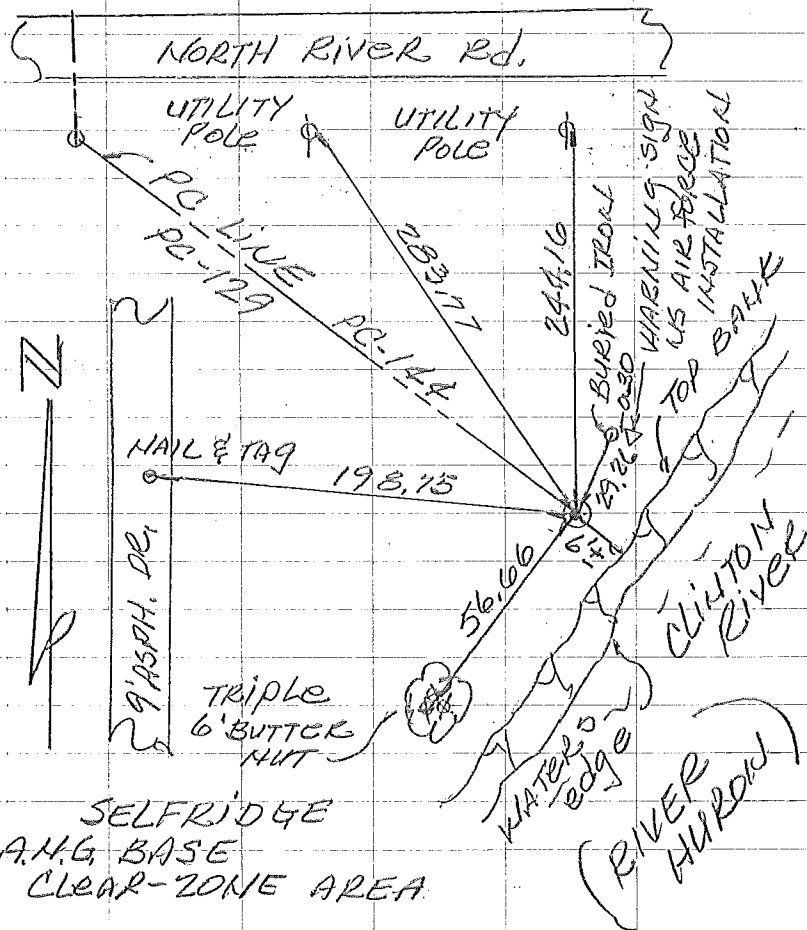 NORTH RIVER Rd.
UTILITY
POLE
UTILITY
POLE
PC LINE
PC-129
PC-144
283.77
244.16
BURIED IRON
29.26
WARNING SIGN
US AIR FORCE
INSTALLATION
TOP BANK
N
NAIL & TAG
198.75
9' ASPH. DR.
56.66
TRIPLE
6' BUTTER
NUT
CLINTON
RIVER
WATERS
edge
(RIVER
HURON)
SELFRIDGE
A.N.G. BASE
CLEAR-ZONE AREA